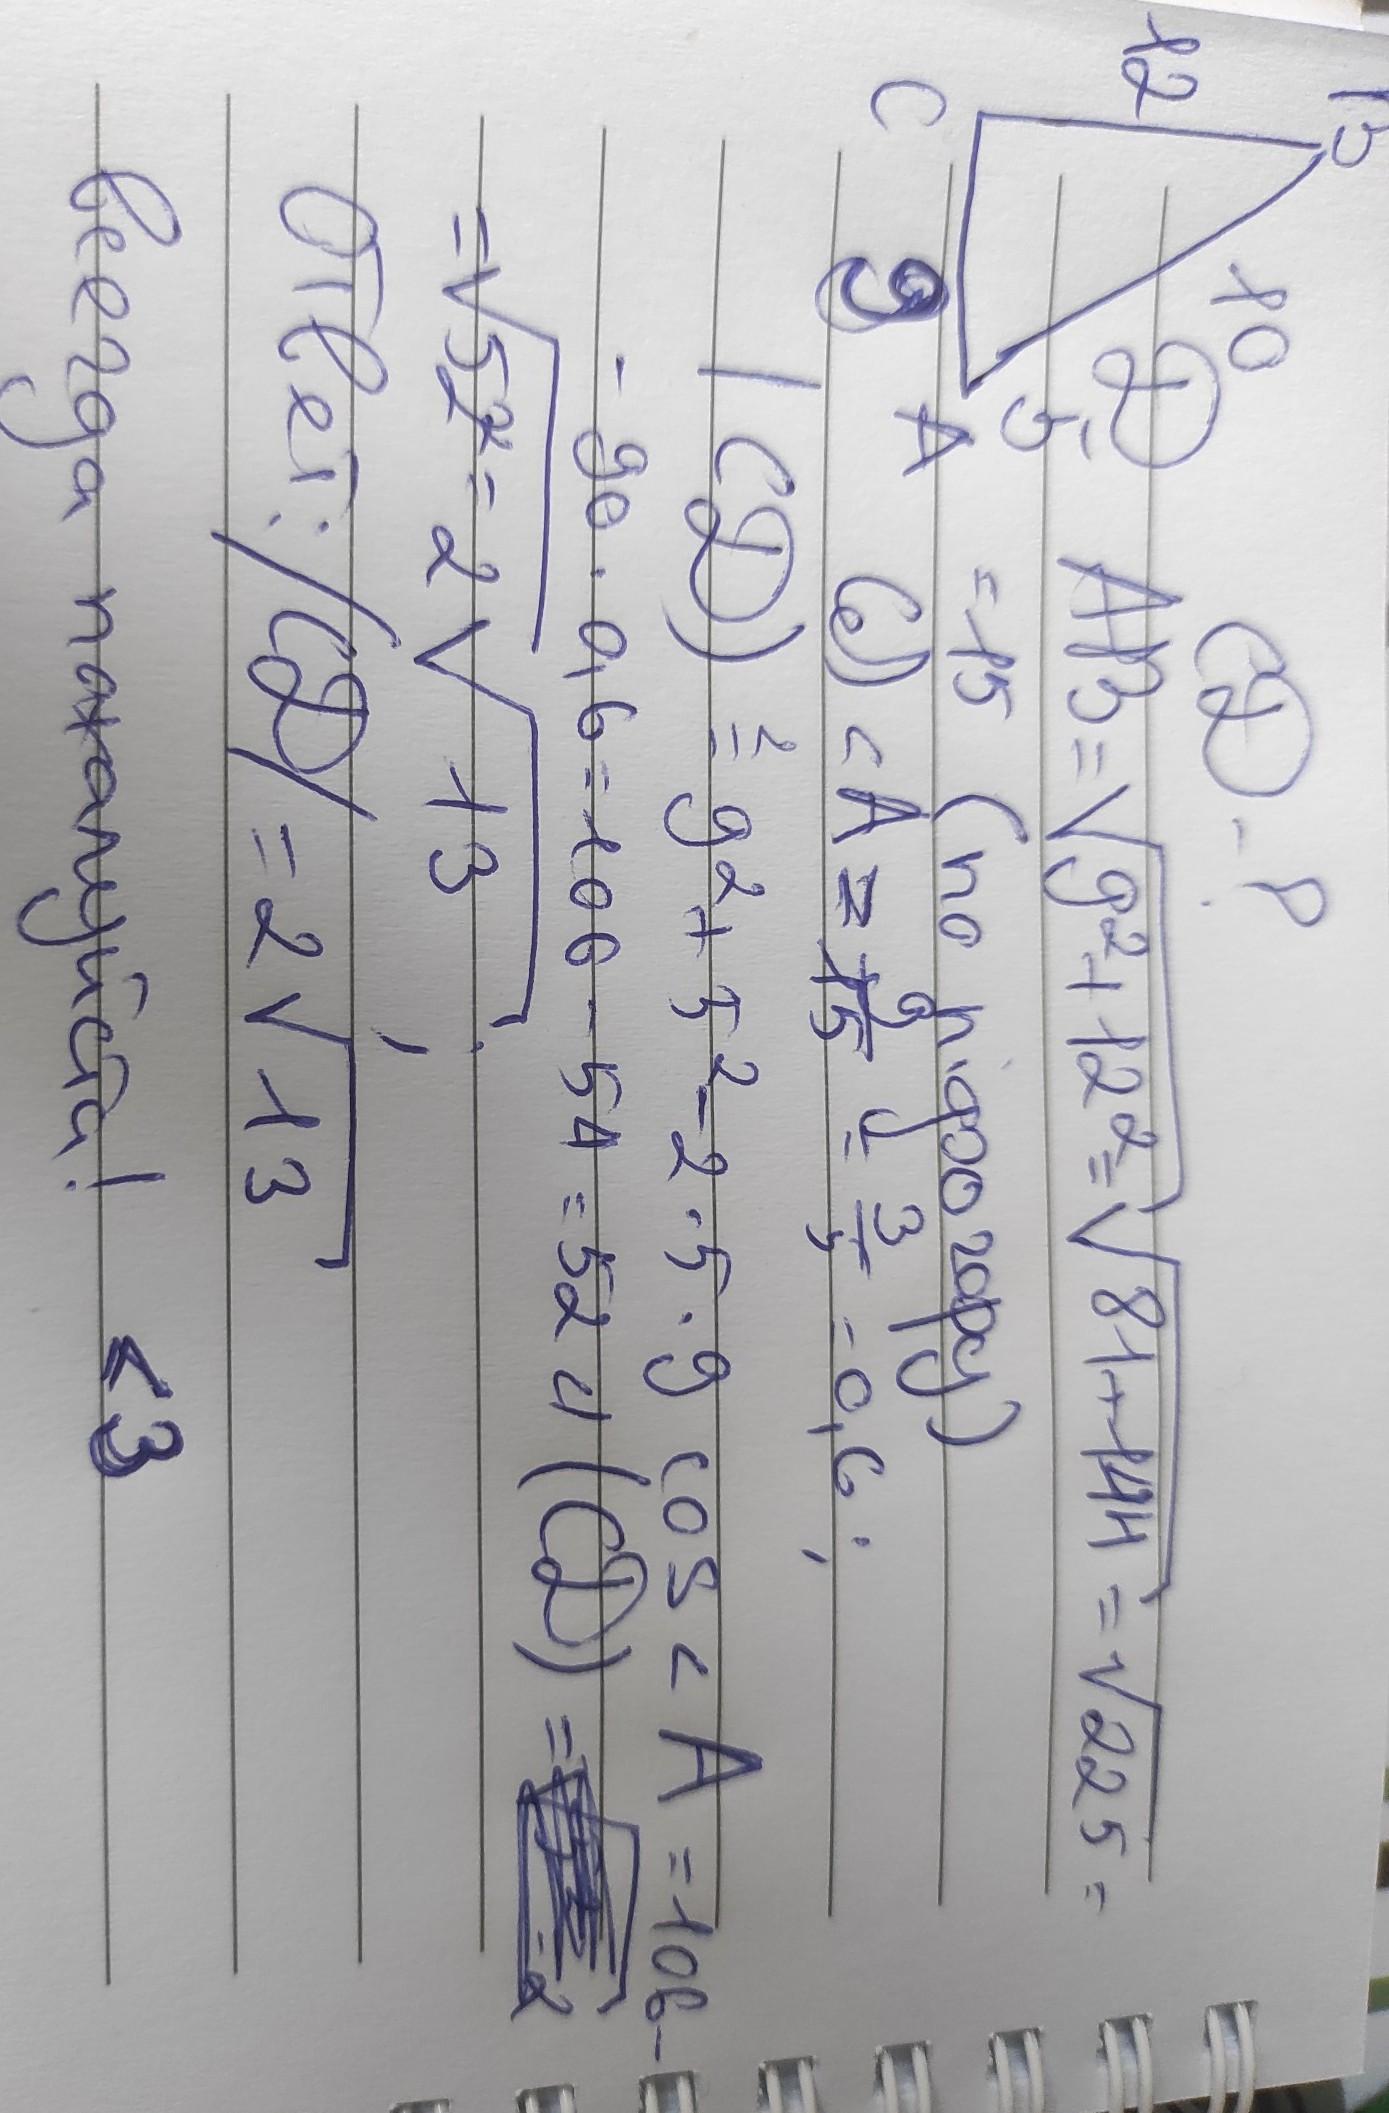 B
12
10
D
5
C
9
A
CD - ?
AB = √9² + 12² = √81 + 144 = √225 =
= 15 (по піфогору)
Cos < A = 9/15 = 3/5 = 0,6 ;
|CD|² = 9² + 5² - 2 · 5 · 9 cos < A = 106 -
- 90 · 0,6 = 106 - 54 = 52 и |CD| =
= √52 = 2√13 ;
Ответ: |CD| = 2√13
всегда пожалуйста! <3